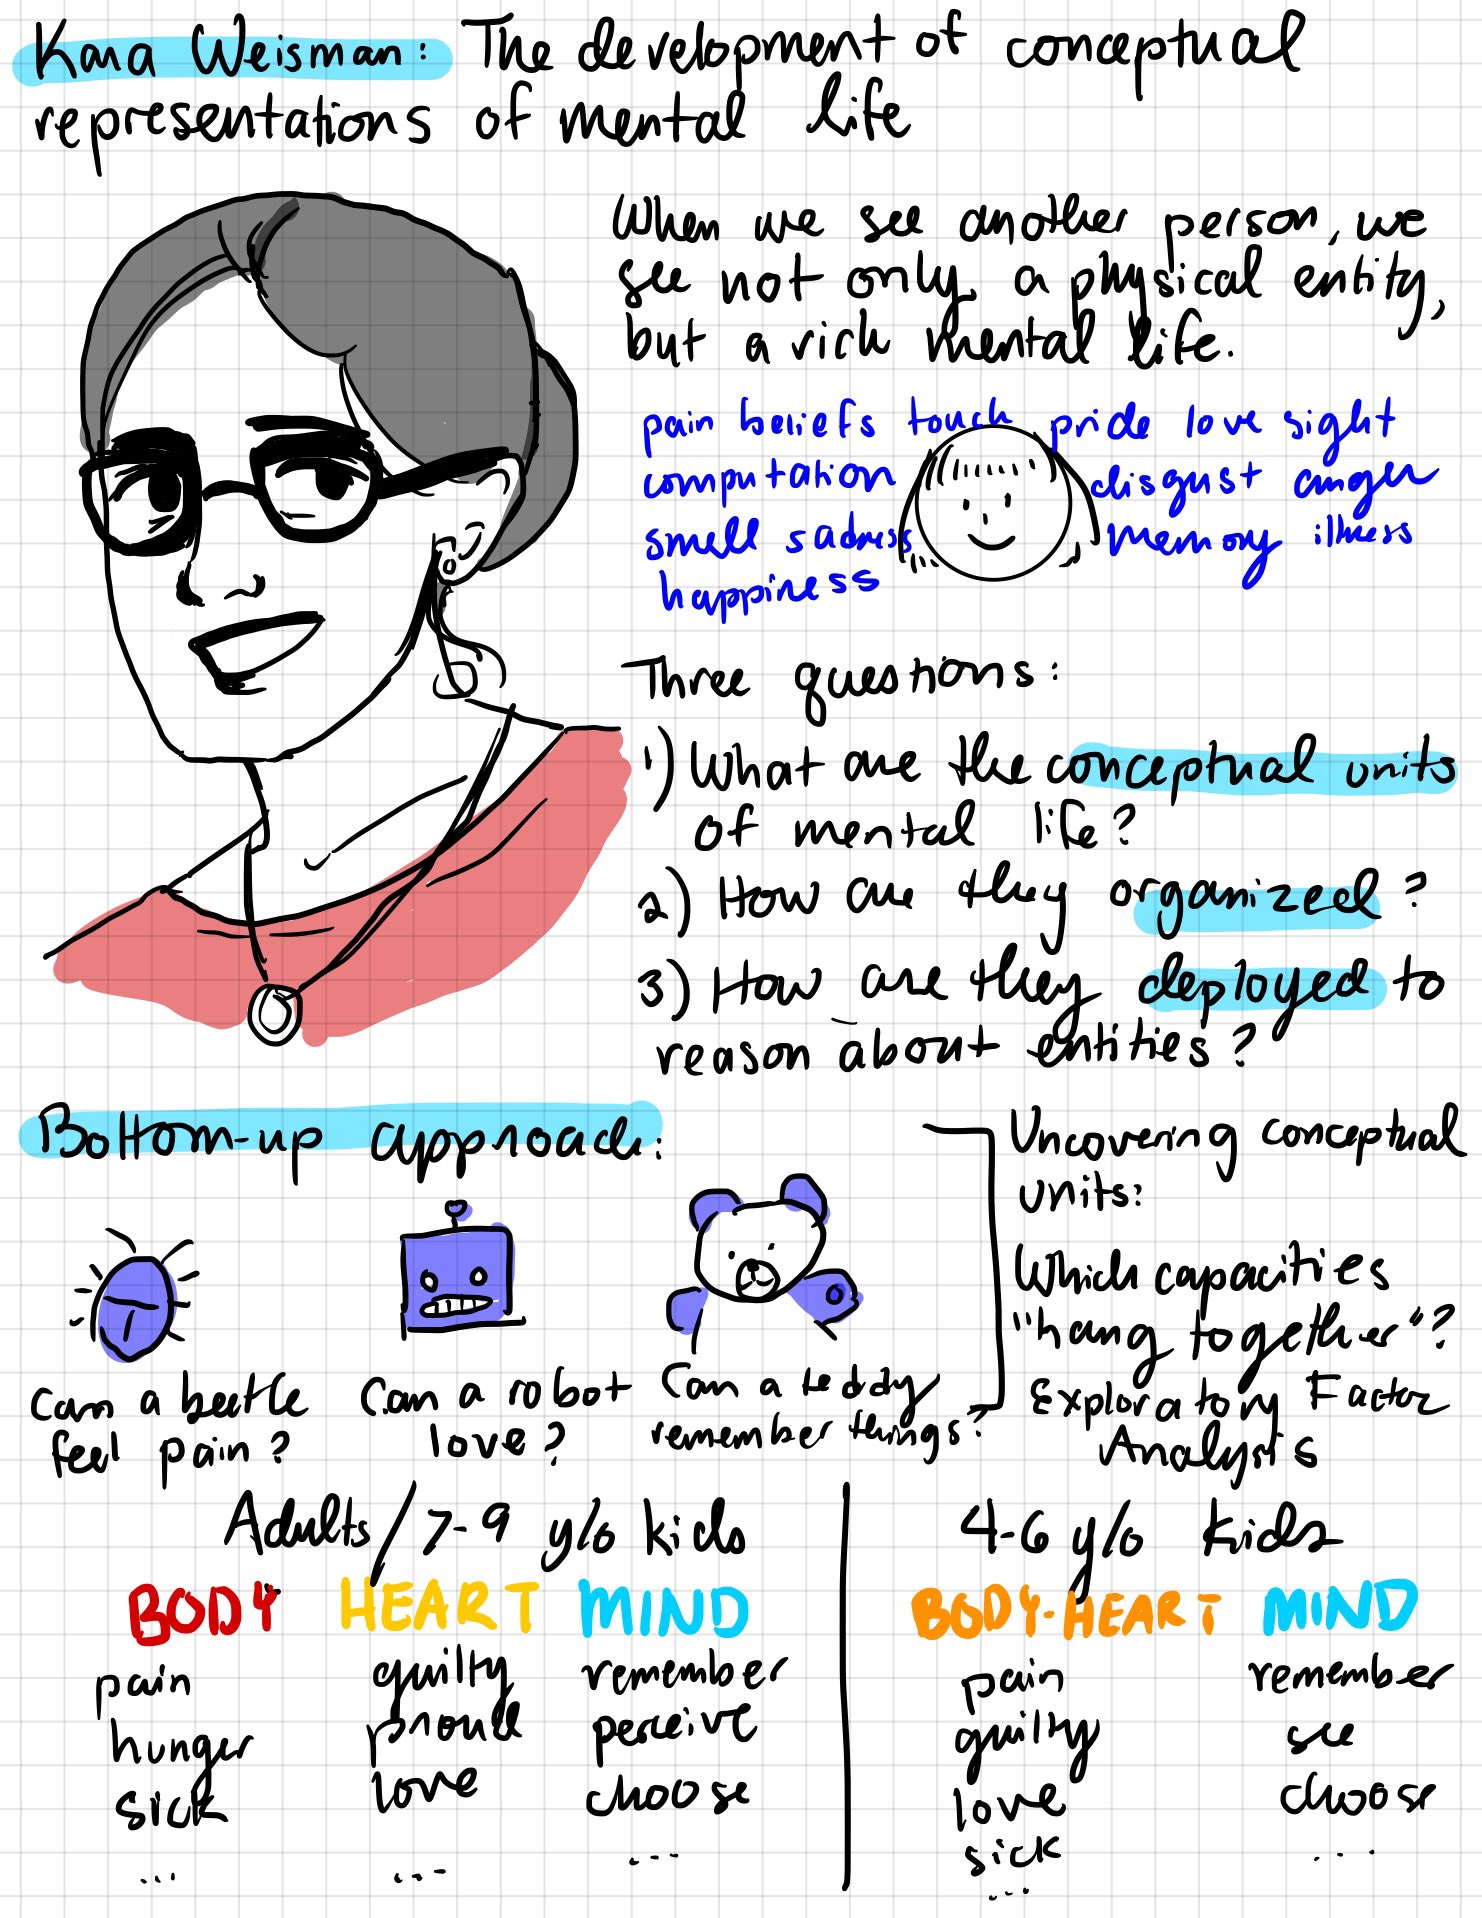 Kara Weisman: The development of conceptual
representations of mental life
When we see another person, we
see not only a physical entity,
but a rich mental life.
pain beliefs touch pride love sight
computation disgust anger
smell sadness memory illness
happiness
Three questions:
1) What are the conceptual units
of mental life?
2) How are they organized?
3) How are they deployed to
reason about entities?
Bottom-up approach:
Can a beetle
feel pain?
Can a robot
love?
Can a teddy
remember things?
Uncovering conceptual
units:
Which capacities
"hang together"?
Exploratory Factor
Analysis
Adults / 7-9 y/o kids
BODY HEART MIND
pain guilty remember
hunger proud perceive
sick love choose
... ... ...
4-6 y/o kids
BODY-HEART MIND
pain remember
guilty see
love choose
sick ...
...